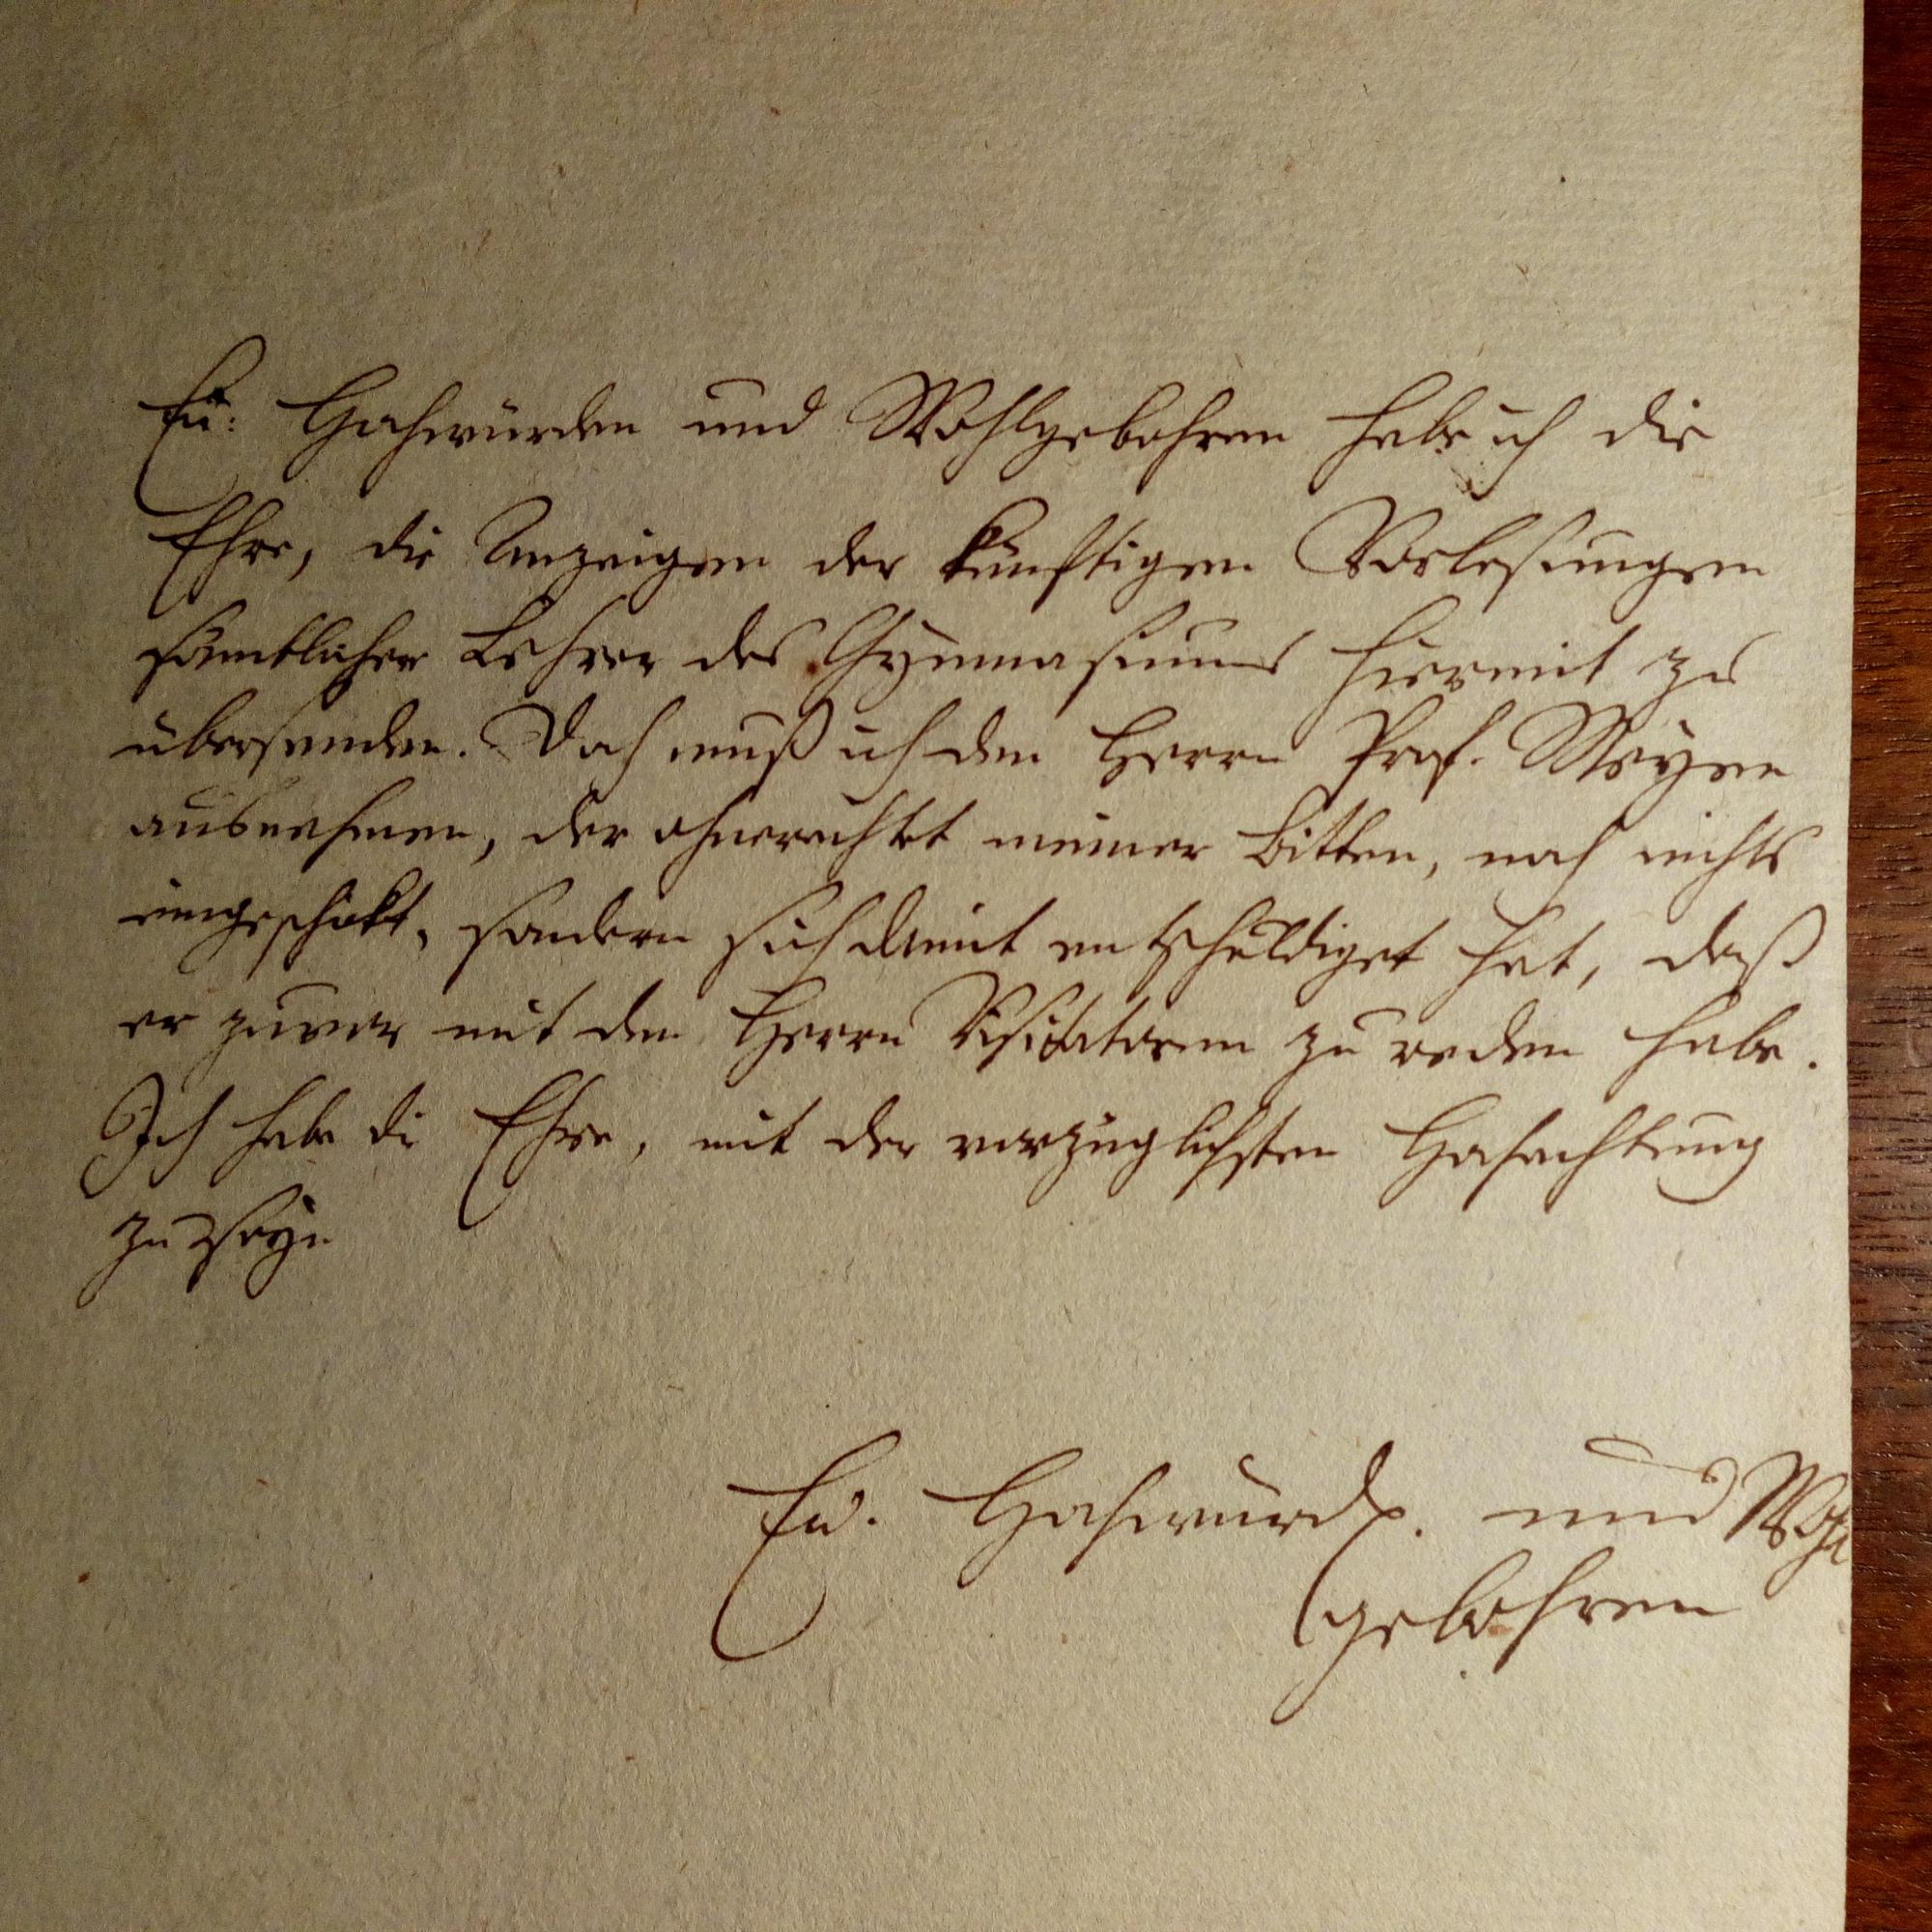 Eu: Hochwürden und Wohlgebohren habe ich die
Ehre, die Anzeigen der künftigen Vorlesungen
sämtlicher Lehrer des Gymnasiums hiermit zu
übersenden. Doch muß ich den Herrn Prof. Meyen
ausnehmen, der ohnerachtet meiner Bitten, noch nichts
eingeschikt, sondern sich damit entschuldiget hat, daß
er zuvor mit den Herrn Visitatoren zu reden habe.
Ich habe die Ehre, mit der vorzüglichsten Hochachtung
zu seyn
Ew. Hochwürd. und Wohl
gebohren